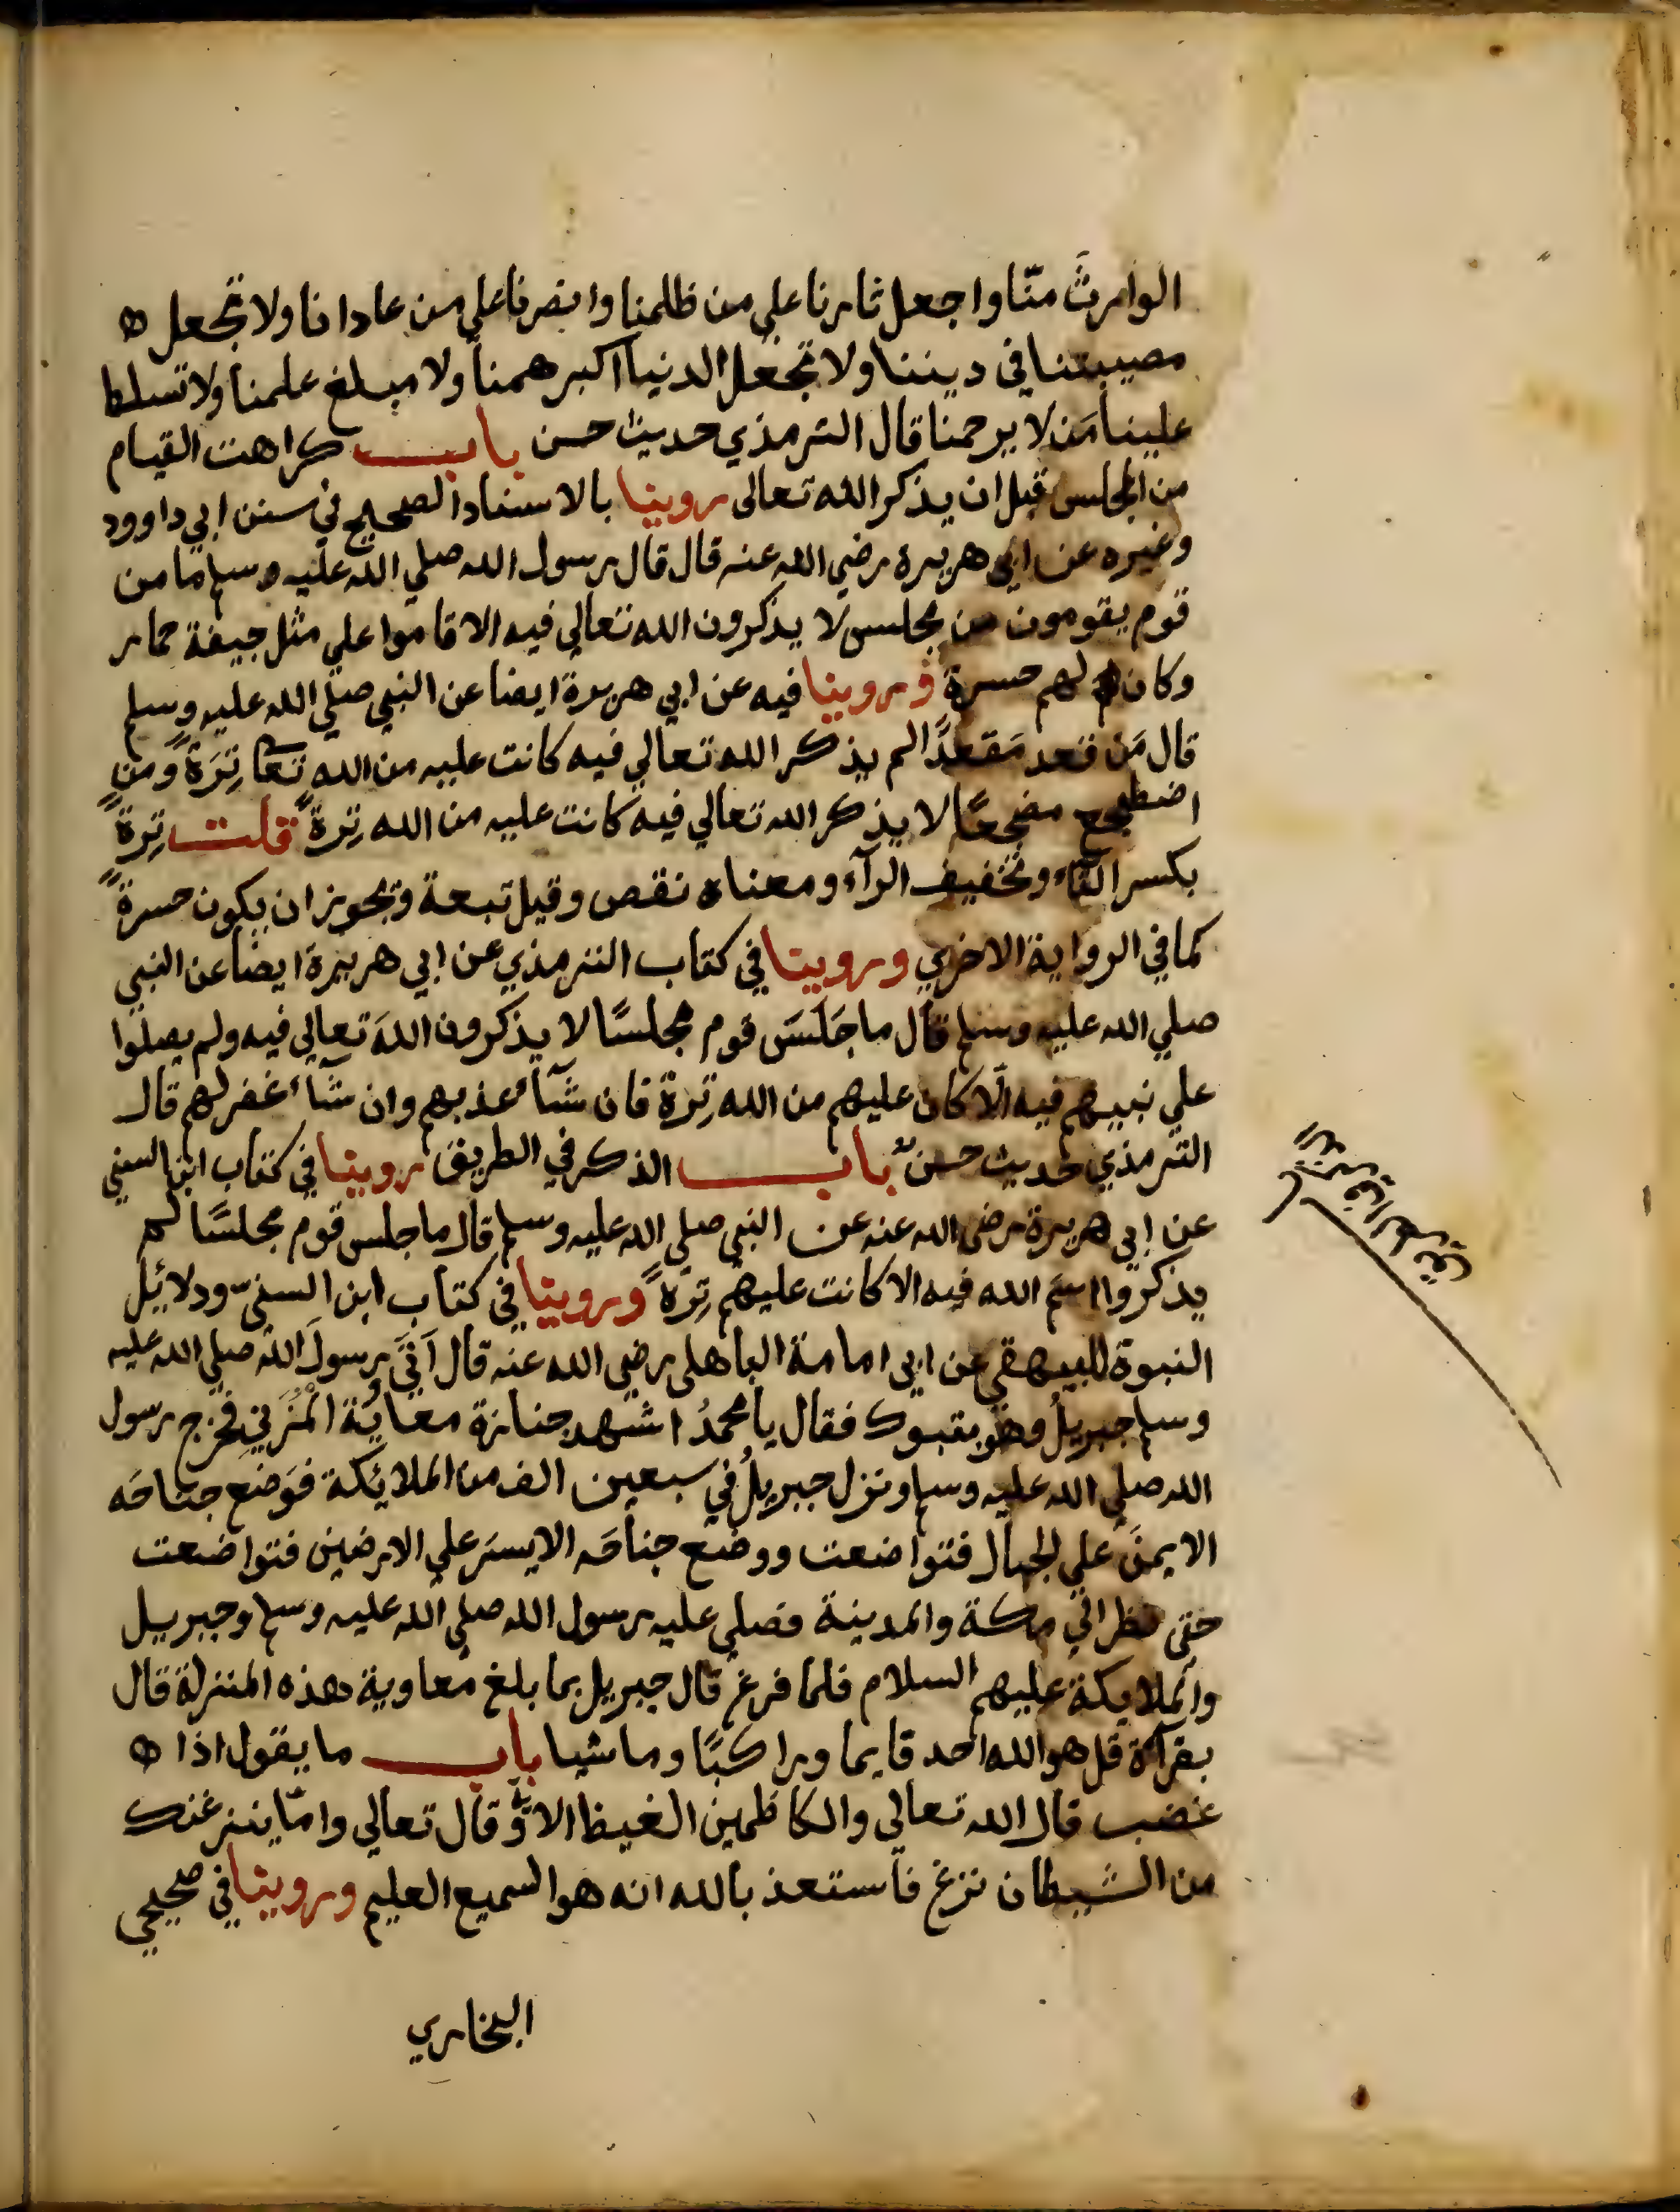 الوارثَ منّا واجعل ثارنا علي من ظلمنا وانصرنا علي من عادانا ولا تجعل ه
مصيبتنا في ديننا ولا تجعل الدنيا اكبر همنا ولا مبلغ علمنا ولا تسلط
علينا مَن لا يرحمنا قال الترمذي حديث حسن باب كراهت القيام
من المجلس قبل ان يذكر الله تعالى روينا بالاسناد الصحيح في سنن ابي داوود
وغيره عن ابي هريرة رضي الله عنه قال قال رسول الله صلي الله عليه وسلم ما من
قوم يقومون من مجلس لا يذكرون الله تعالي فيه الا قاموا علي مثل جيفة حمار
وكان لهم حسرة وروينا فيه عن ابي هريرة ايضا عن النبي صلي الله عليه وسلم
قال مَن قعد مَقعدًا لم يذكر الله تعالي فيه كانت عليه من الله تعا تِرَةً ومن
اضطجع مضجعًا لا يذكر الله تعالي فيه كانت عليه من الله تِرةً قلت تِرةً
بكسر التاء وتخفيف الرآء ومعناه نقص وقيل تبعة وتجويز ان يكون حسرةً
كما في الرواية الاخري وروينا في كتاب الترمذي عن ابي هريرة ايضًا عن النبي
صلي الله عليه وسلم قال ما جَلَسَ قوم مجلسًا لا يذكرون اللهَ تعالي فيه ولم يصلوا
علي نبيهم فيه الّا كان عليهم من الله تِرة فان شآء عذبهم وان شآء غفر لهم قال
الترمذي حديث حسنٌ باب الذكر في الطريق روينا في كتاب ابن السني
عن ابي هريرة رضي الله عنه عن النبي صلي الله عليه وسلم قال ما جلس قوم مجلسًا لم
يذكروا اسمَ الله فيه الا كانت عليهم تِرَةً وروينا في كتاب ابن السنيّ ودلائِل
النبوة للبيهقي عن ابي امامة الباهلي رضي الله عنه قال اَتَيَ رسولَ الله صلي الله عليه
وسلم جبريلُ وهو بتبوك فقال يا محمدُ اشهد جنازة معاوية المُزَني فخرج رسول
الله صلي الله عليه وسلم ونزل جبريلُ في سبعين الف من الملائكة فوَضع جناحَه
الايمنَ علي الجبال فتواضعت ووضع جناحَه الايسرَ علي الارضين فتواضعت
حتى نظر الي مكة والمدينة فصلي عليه رسول الله صلي الله عليه وسلم وجبريل
والملايكة عليهم السلام فلما فرغ قال جبريل بما بلغ معاوية هذه المنزلة قال
بقرآة قل هو الله احد قايما وراكبًا وماشيا باب ما يقول اذا ه
غضب قال الله تعالي والكاظمين الغيظ الاية وقال تعالي وامّا ينزغنك
من الشيطان نزغ فاستعذ بالله انه هو السميع العليم وروينا في صحيحي
البخاري